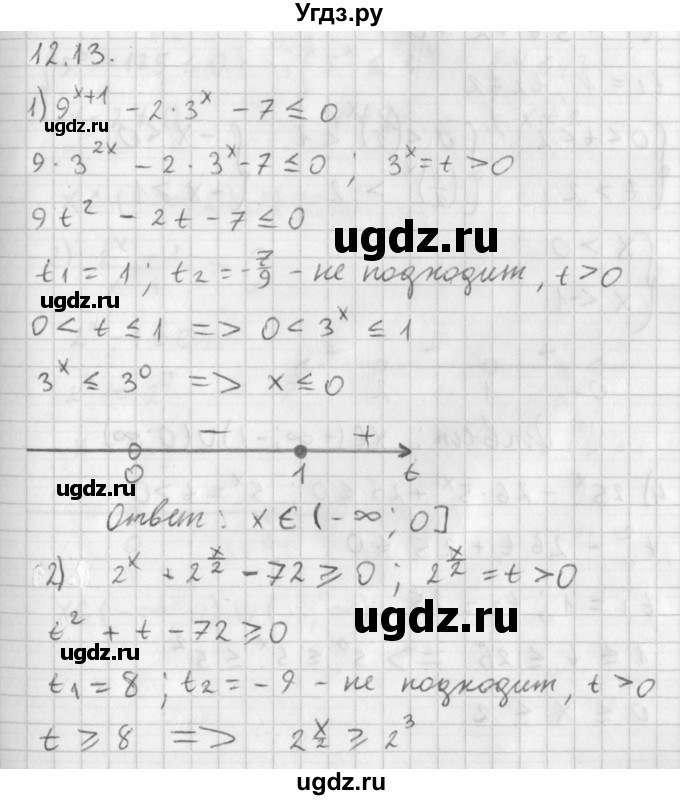 Угдз.ру
12.13.
1) 9^{x+1} - 2·3^x - 7 ≤ 0
ugdz.ru
9·3^{2x} - 2·3^x - 7 ≤ 0 ; 3^x = t > 0
9t² - 2t - 7 ≤ 0
ugdz.ru
t₁ = 1 ; t₂ = -7/9 - не подходит, t > 0
ugdz.ru
0 < t ≤ 1 => 0 < 3^x ≤ 1
3^x ≤ 3^0 => x ≤ 0
- +
0 1 t
ugdz.ru
Ответ: x ∈ (-∞; 0]
2) 2^x + 2^{x/2} - 72 ≥ 0 ; 2^{x/2} = t > 0
ugdz.ru
t² + t - 72 ≥ 0
ugdz.ru
t₁ = 8 ; t₂ = -9 - не подходит, t > 0
t ≥ 8 => 2^{x/2} ≥ 2³
ugdz.ru